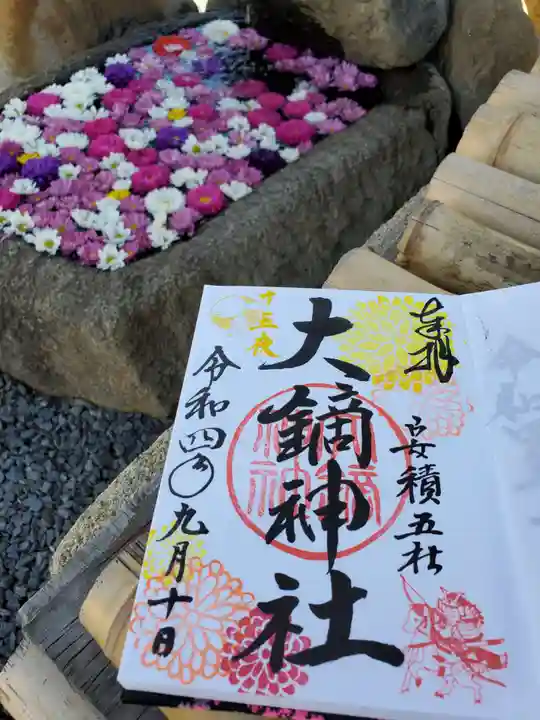 奉拝
安積五社
十三夜
大鏑神社
令和四年九月十日